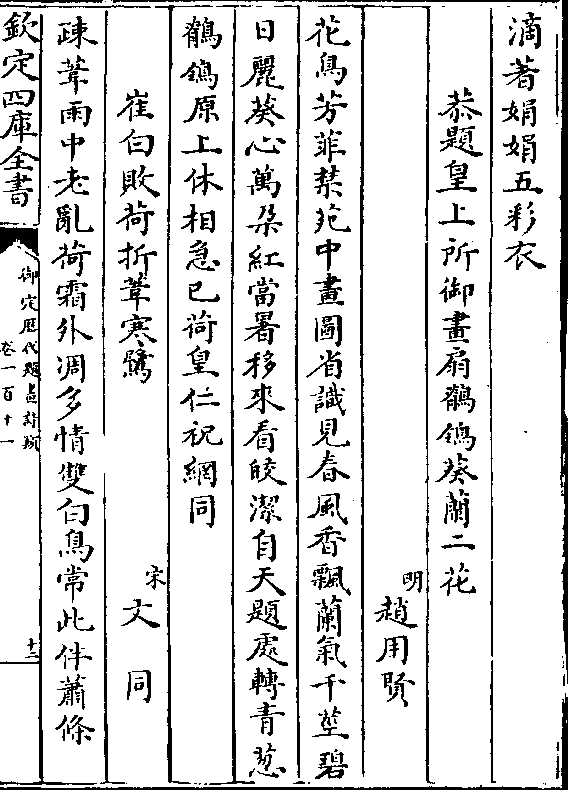 滴著娟娟五彩衣
恭題皇上所御畫扇鶺鴒葵蘭二花
明趙用賢
花鳥芳菲禁苑中畫圖省識見春風香飄蘭氣千莖碧
日麗葵心萬朶紅當暑移來看皎潔自天題處轉青葱
鶺鴒原上休相急已荷皇仁祝網同
崔白敗荷折葦寒鷺
宋文同
疎葦雨中老亂荷霜外凋多情雙白鳥常此伴蕭條
欽定四庫全書
御定歷代題畫詩類
卷一百十一
十二